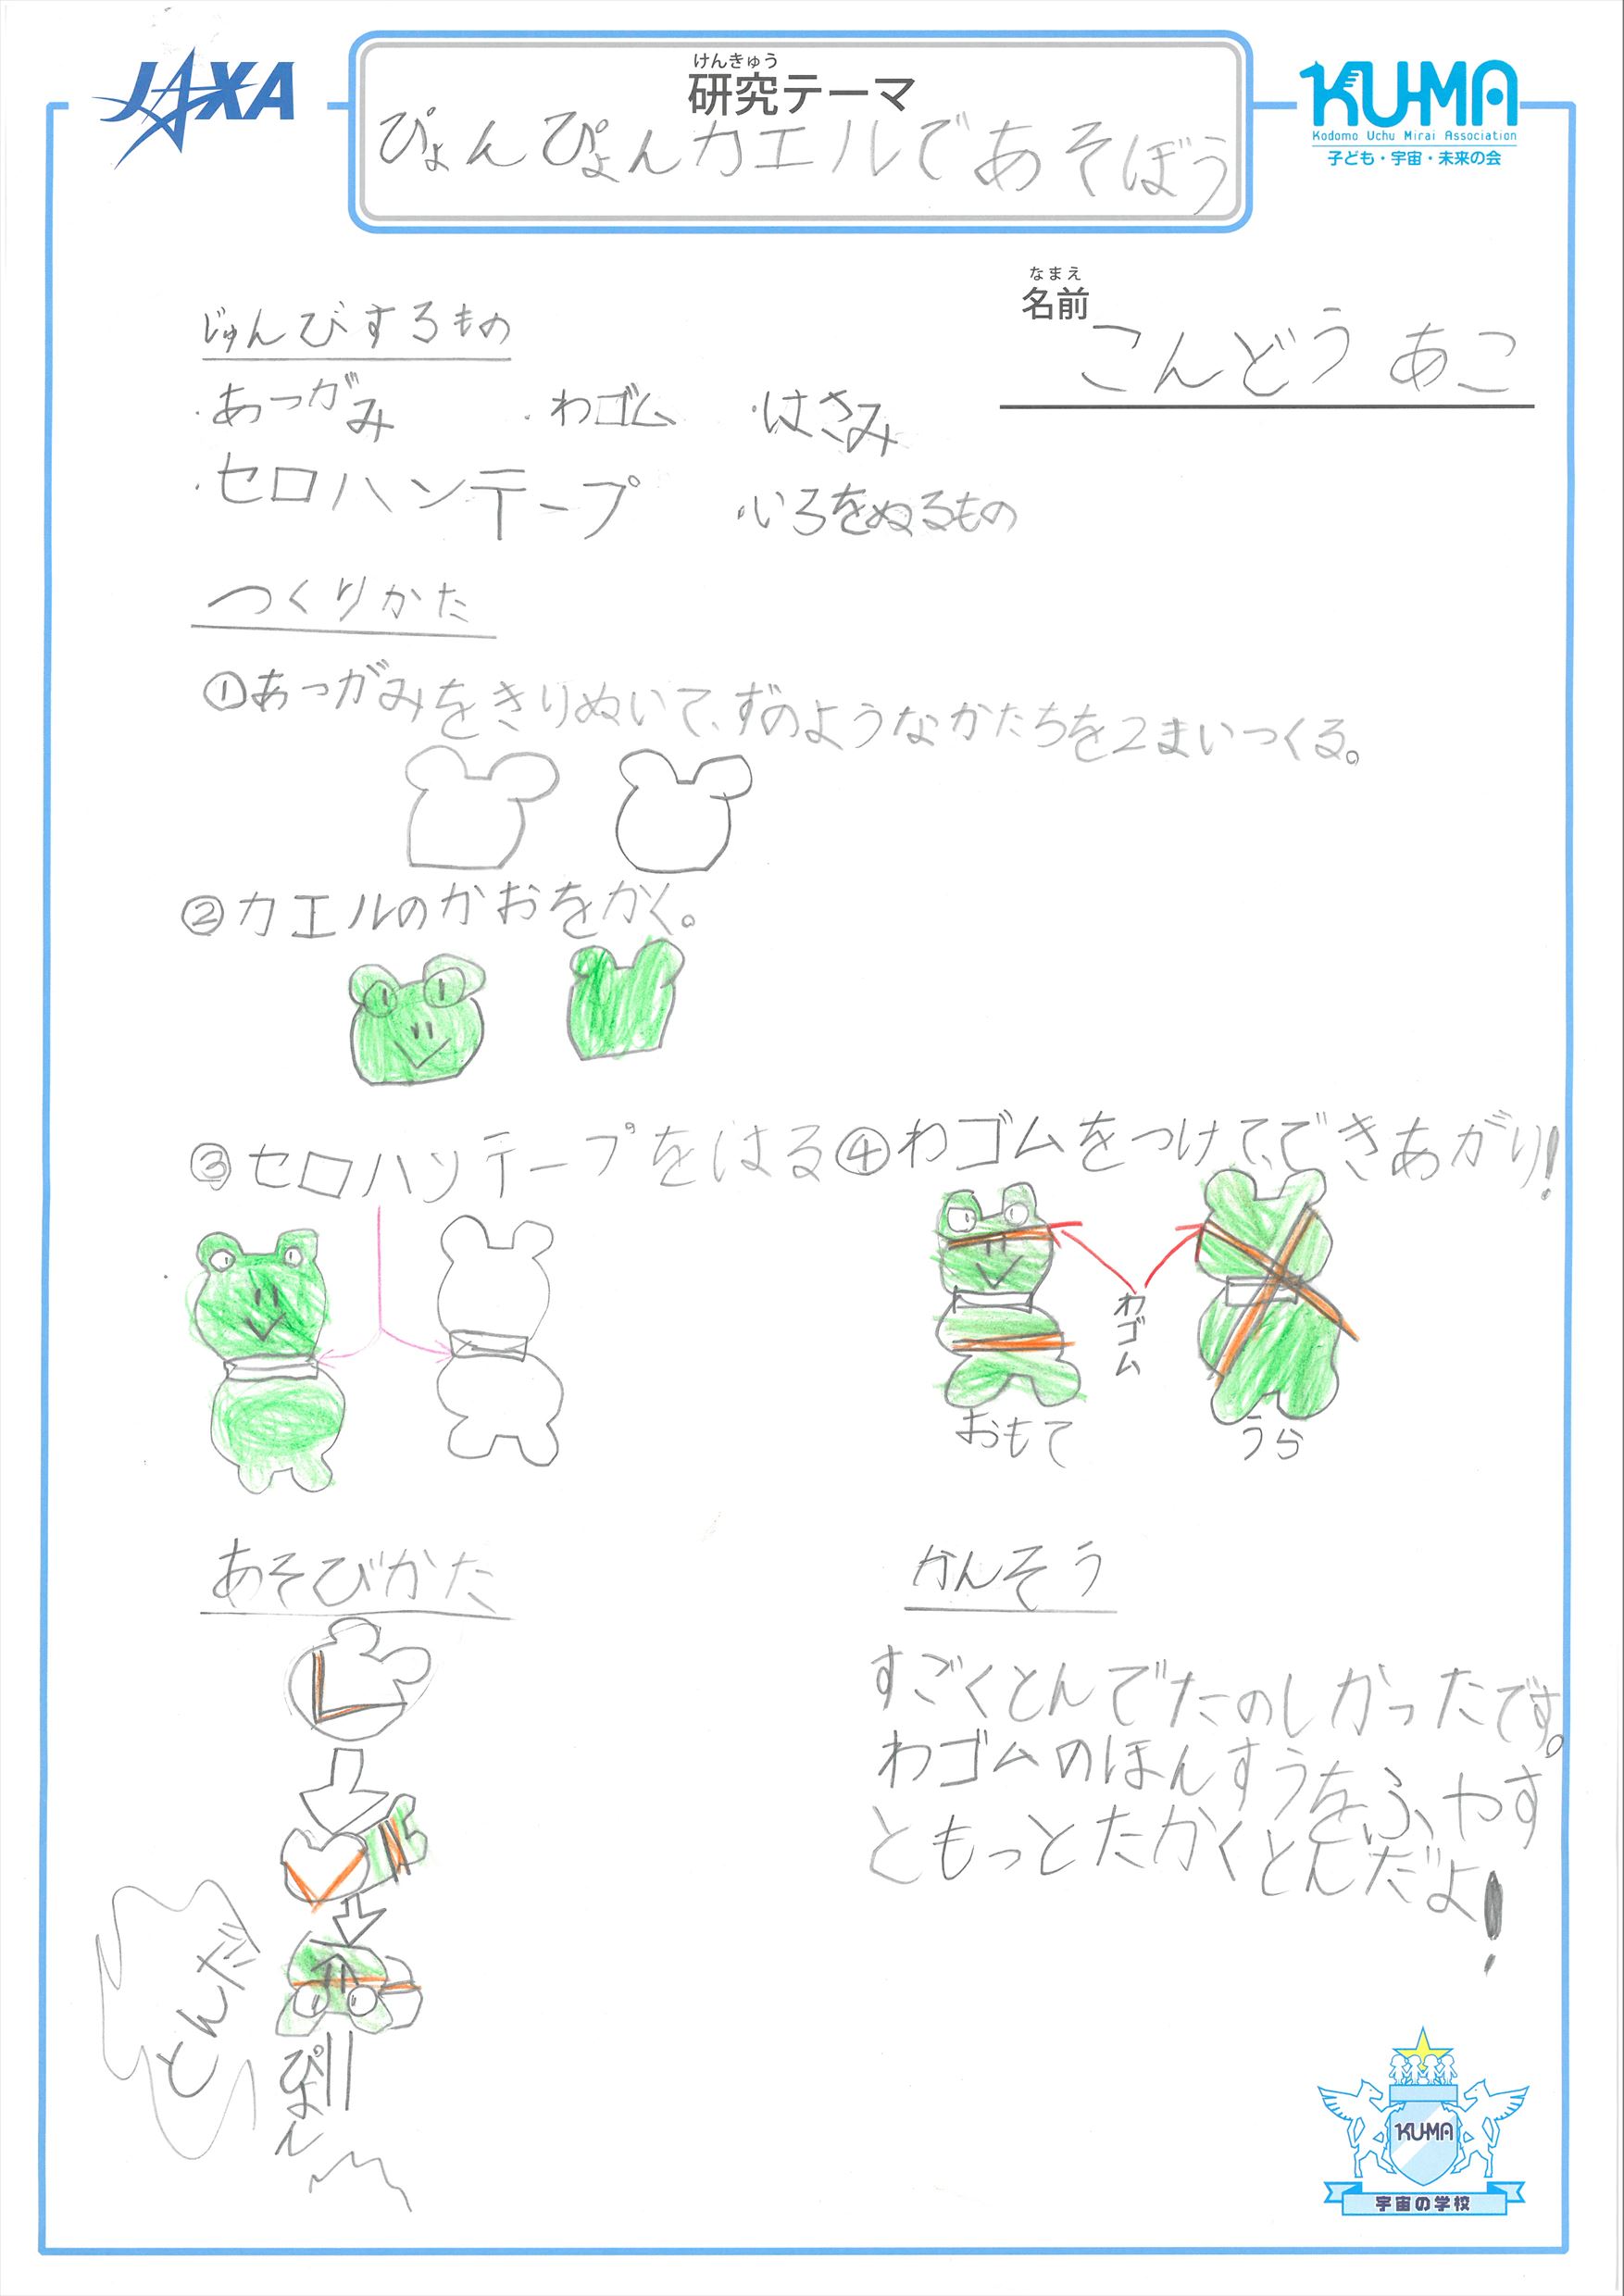 JAXA
けんきゅう
研究テーマ
ぴょんぴょんカエルであそぼう
KU-MA
Kodomo Uchu Mirai Association
子ども・宇宙・未来の会
なまえ
名前
こんどう あこ
じゅんびするもの
・あつがみ ・わゴム ・はさみ
・セロハンテープ ・いろをぬるもの
つくりかた
①あつがみをきりぬいて、ずのようなかたちを2まいつくる。
②カエルのかおをかく。
③セロハンテープをはる
④わゴムをつけて、できあがり!
わゴム
おもて
うら
あそびかた
とんだ
ぴょん
かんそう
すごくとんでたのしかったです。
わゴムのほんすうをふやす
ともっとたかくとんだよ!
KU-MA
宇宙の学校